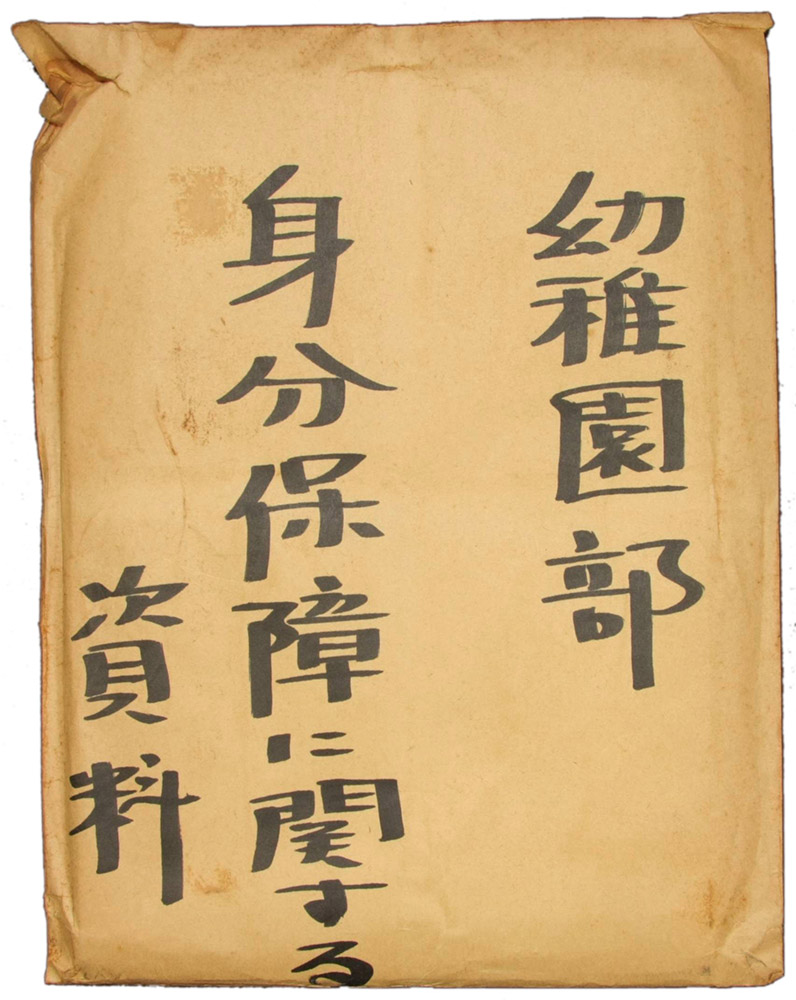 幼稚園部
身分保障に関する
資料